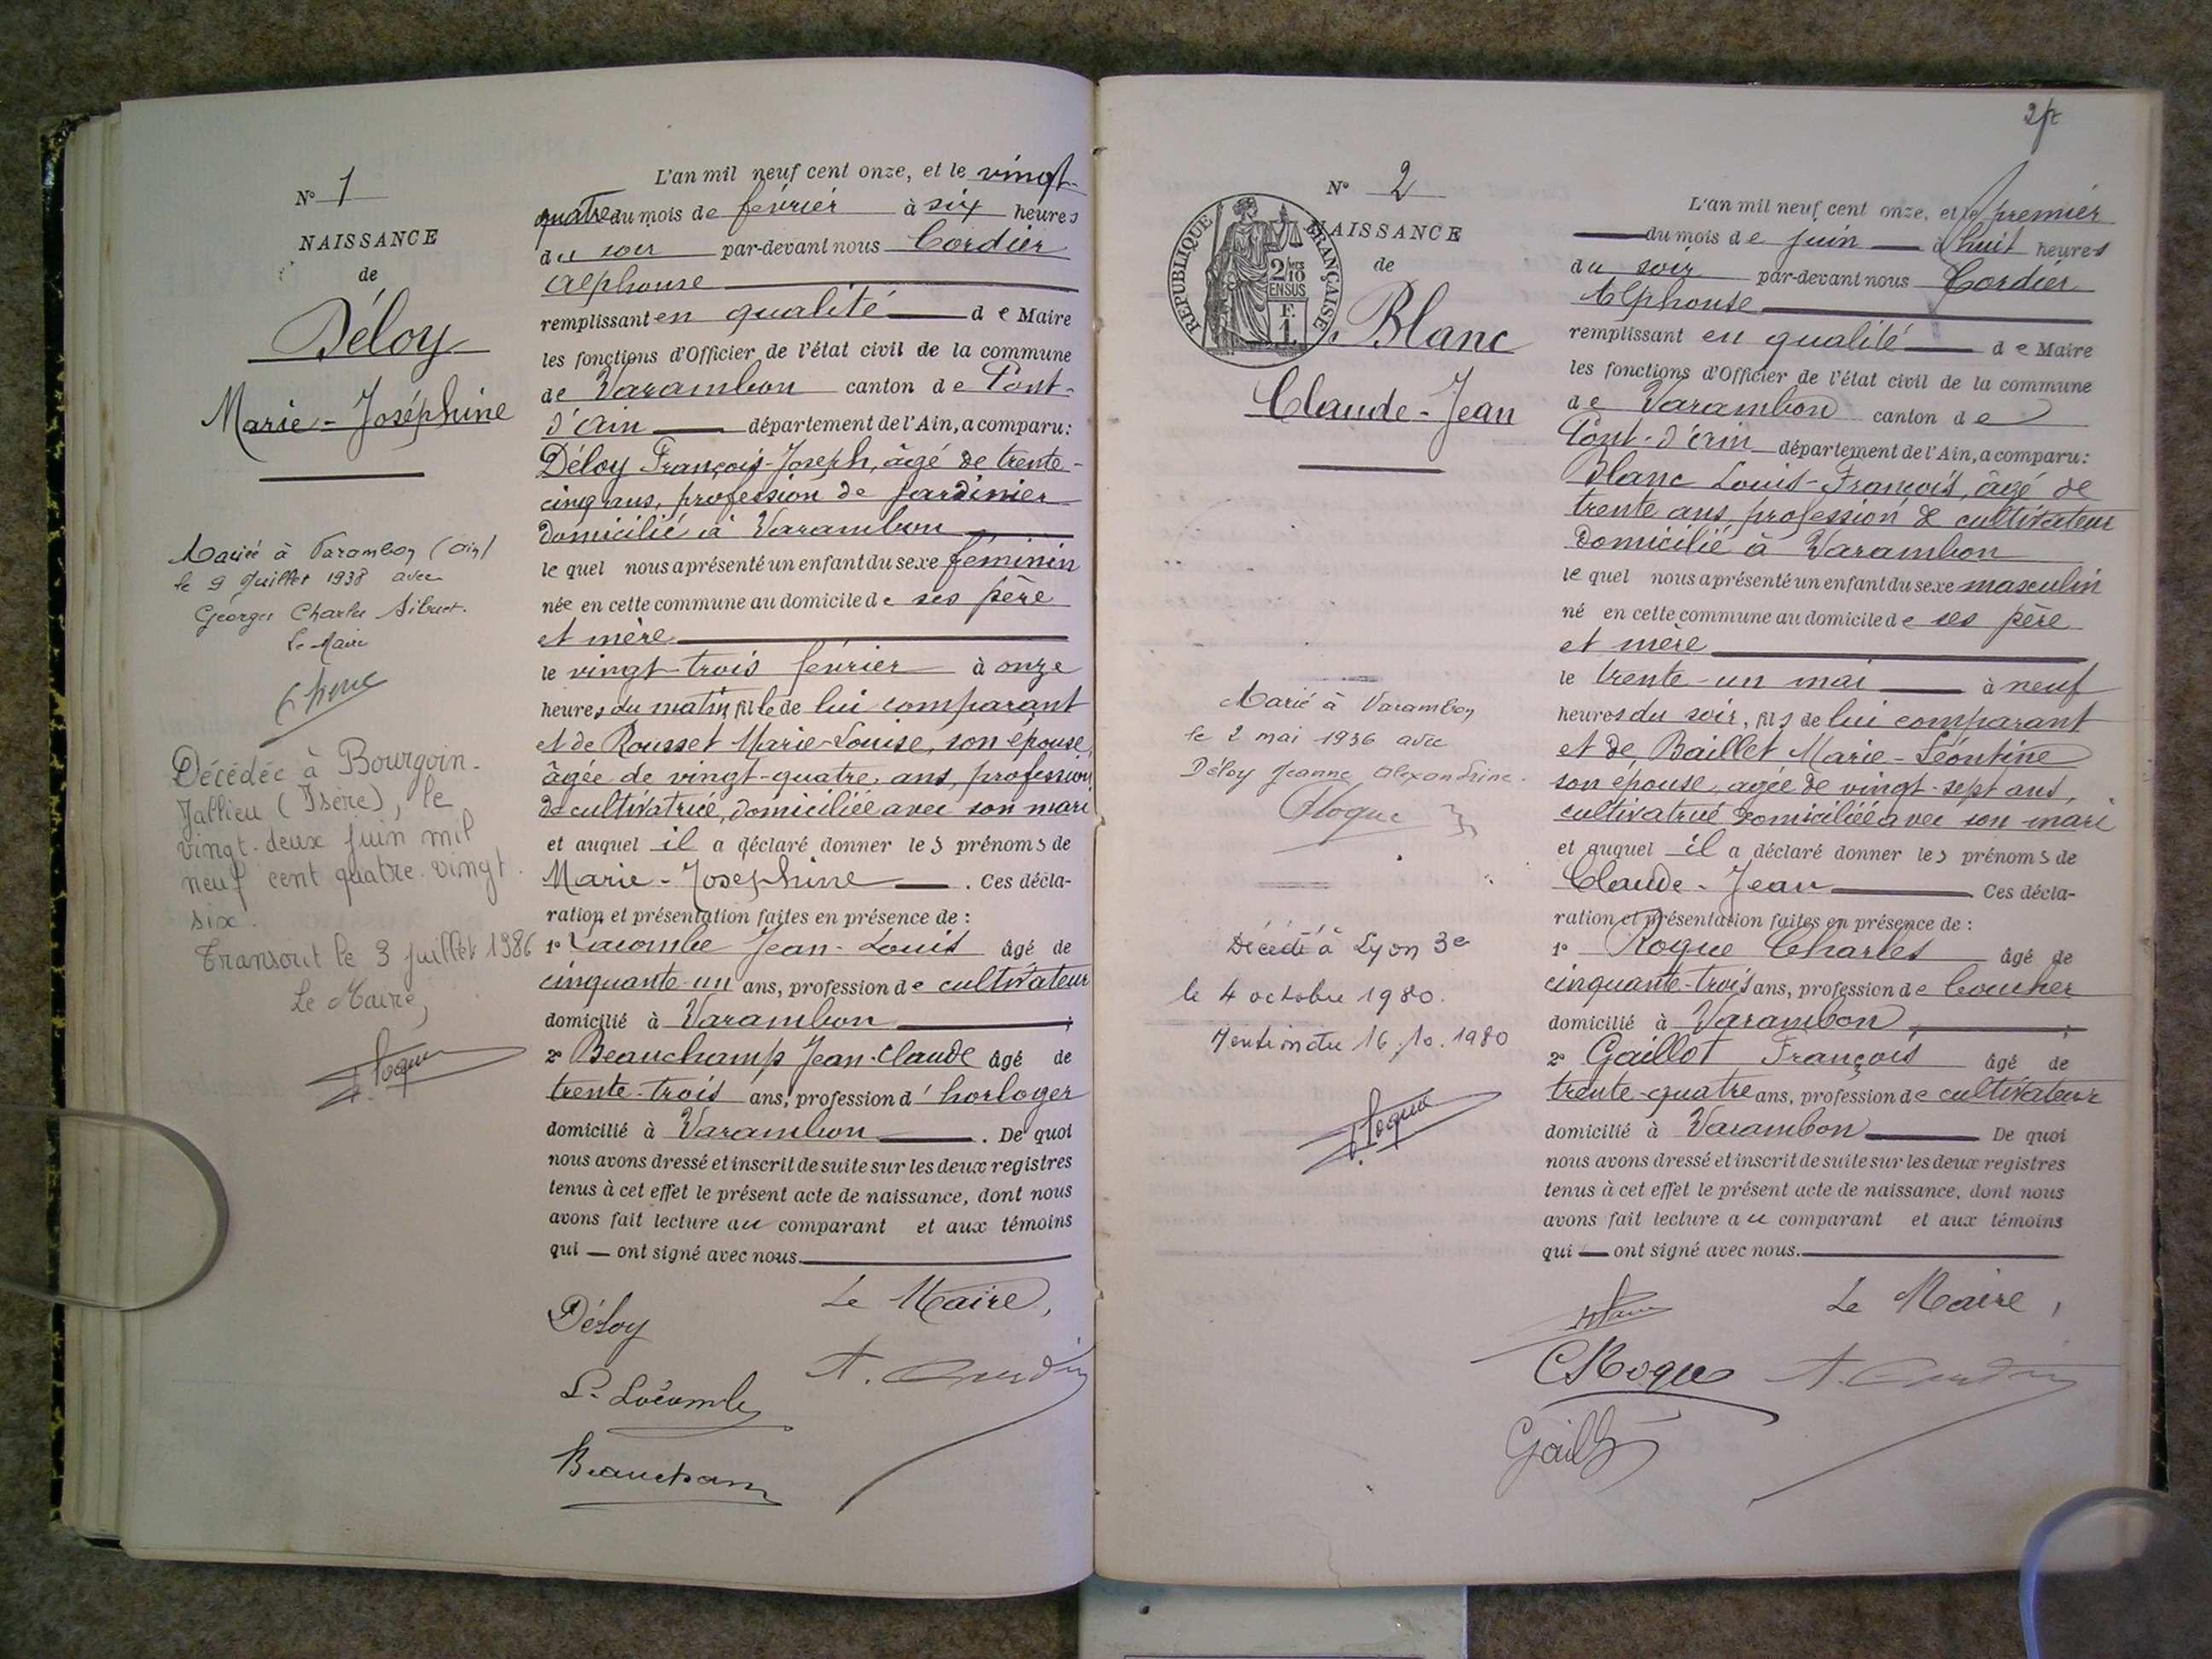 N° 1
NAISSANCE
de
Déloy
Marie-Joséphine
Mariée à Varambon (Ain)
le 9 Juillet 1938 avec
Georges Charles Sibuet.
Le Maire
Décédée à Bourgoin-
Jallieu (Isère), le
vingt-deux juin mil
neuf cent quatre-vingt-
six.
Transcrit le 3 juillet 1986
Le Maire,
L'an mil neuf cent onze, et le vingt-
quatre du mois de février à six heures
du soir par-devant nous Cordier
Alphonse
remplissant en qualité de Maire
les fonctions d'Officier de l'état civil de la commune
de Varambon canton de Pont-
d'Ain département de l'Ain, a comparu:
Déloy François-Joseph, âgé de trente-
cinq ans, profession de jardinier
domicilié à Varambon
le quel nous a présenté un enfant du sexe féminin
née en cette commune au domicile de ses père
et mère
le vingt-trois février à onze
heures du matin, fille de lui comparant
et de Rousset Marie-Louise, son épouse,
âgée de vingt-quatre ans, profession
de cultivatrice, domiciliée avec son mari
et auquel il a déclaré donner les prénoms de
Marie-Josephine. Ces décla-
ration et présentation faites en présence de :
1° Lacombe Jean-Louis âgé de
cinquante-un ans, profession de cultivateur
domicilié à Varambon ;
2° Beauchamp Jean-Claude âgé de
trente-trois ans, profession d'horloger
domicilié à Varambon. De quoi
nous avons dressé et inscrit de suite sur les deux registres
tenus à cet effet le présent acte de naissance, dont nous
avons fait lecture au comparant et aux témoins
qui ont signé avec nous.
Le Maire,
Déloy
L. Lacombe
Beauchamp
N° 2
RÉPUBLIQUE FRANÇAISE
2/10 EN SUS
F. 1
NAISSANCE
de
Blanc
Claude-Jean
Marié à Varambon
le 2 mai 1936 avec
Déloy Jeanne Alexandrine.
Décédé à Lyon 3e
le 4 octobre 1980.
Mention du 16.10.1980
L'an mil neuf cent onze, et le premier
du mois de juin à huit heures
du soir par-devant nous Cordier
Alphonse
remplissant en qualité de Maire
les fonctions d'Officier de l'état civil de la commune
de Varambon canton de
Pont-d'Ain département de l'Ain, a comparu:
Blanc Louis-François, âgé de
trente ans, profession de cultivateur
domicilié à Varambon
le quel nous a présenté un enfant du sexe masculin
né en cette commune au domicile de ses père
et mère
le trente-un mai à neuf
heures du soir, fils de lui comparant
et de Baillet Marie-Léontine
son épouse, agée de vingt-sept ans,
cultivatrice domiciliée avec son mari
et auquel il a déclaré donner les prénoms de
Claude-Jean Ces décla-
ration et présentation faites en présence de :
1° Roque Charles âgé de
cinquante-trois ans, profession de boucher
domicilié à Varambon, ;
2° Gaillot François âgé de
trente-quatre ans, profession de cultivateur
domicilié à Varambon De quoi
nous avons dressé et inscrit de suite sur les deux registres
tenus à cet effet le présent acte de naissance, dont nous
avons fait lecture au comparant et aux témoins
qui ont signé avec nous.
Le Maire,
C Roque